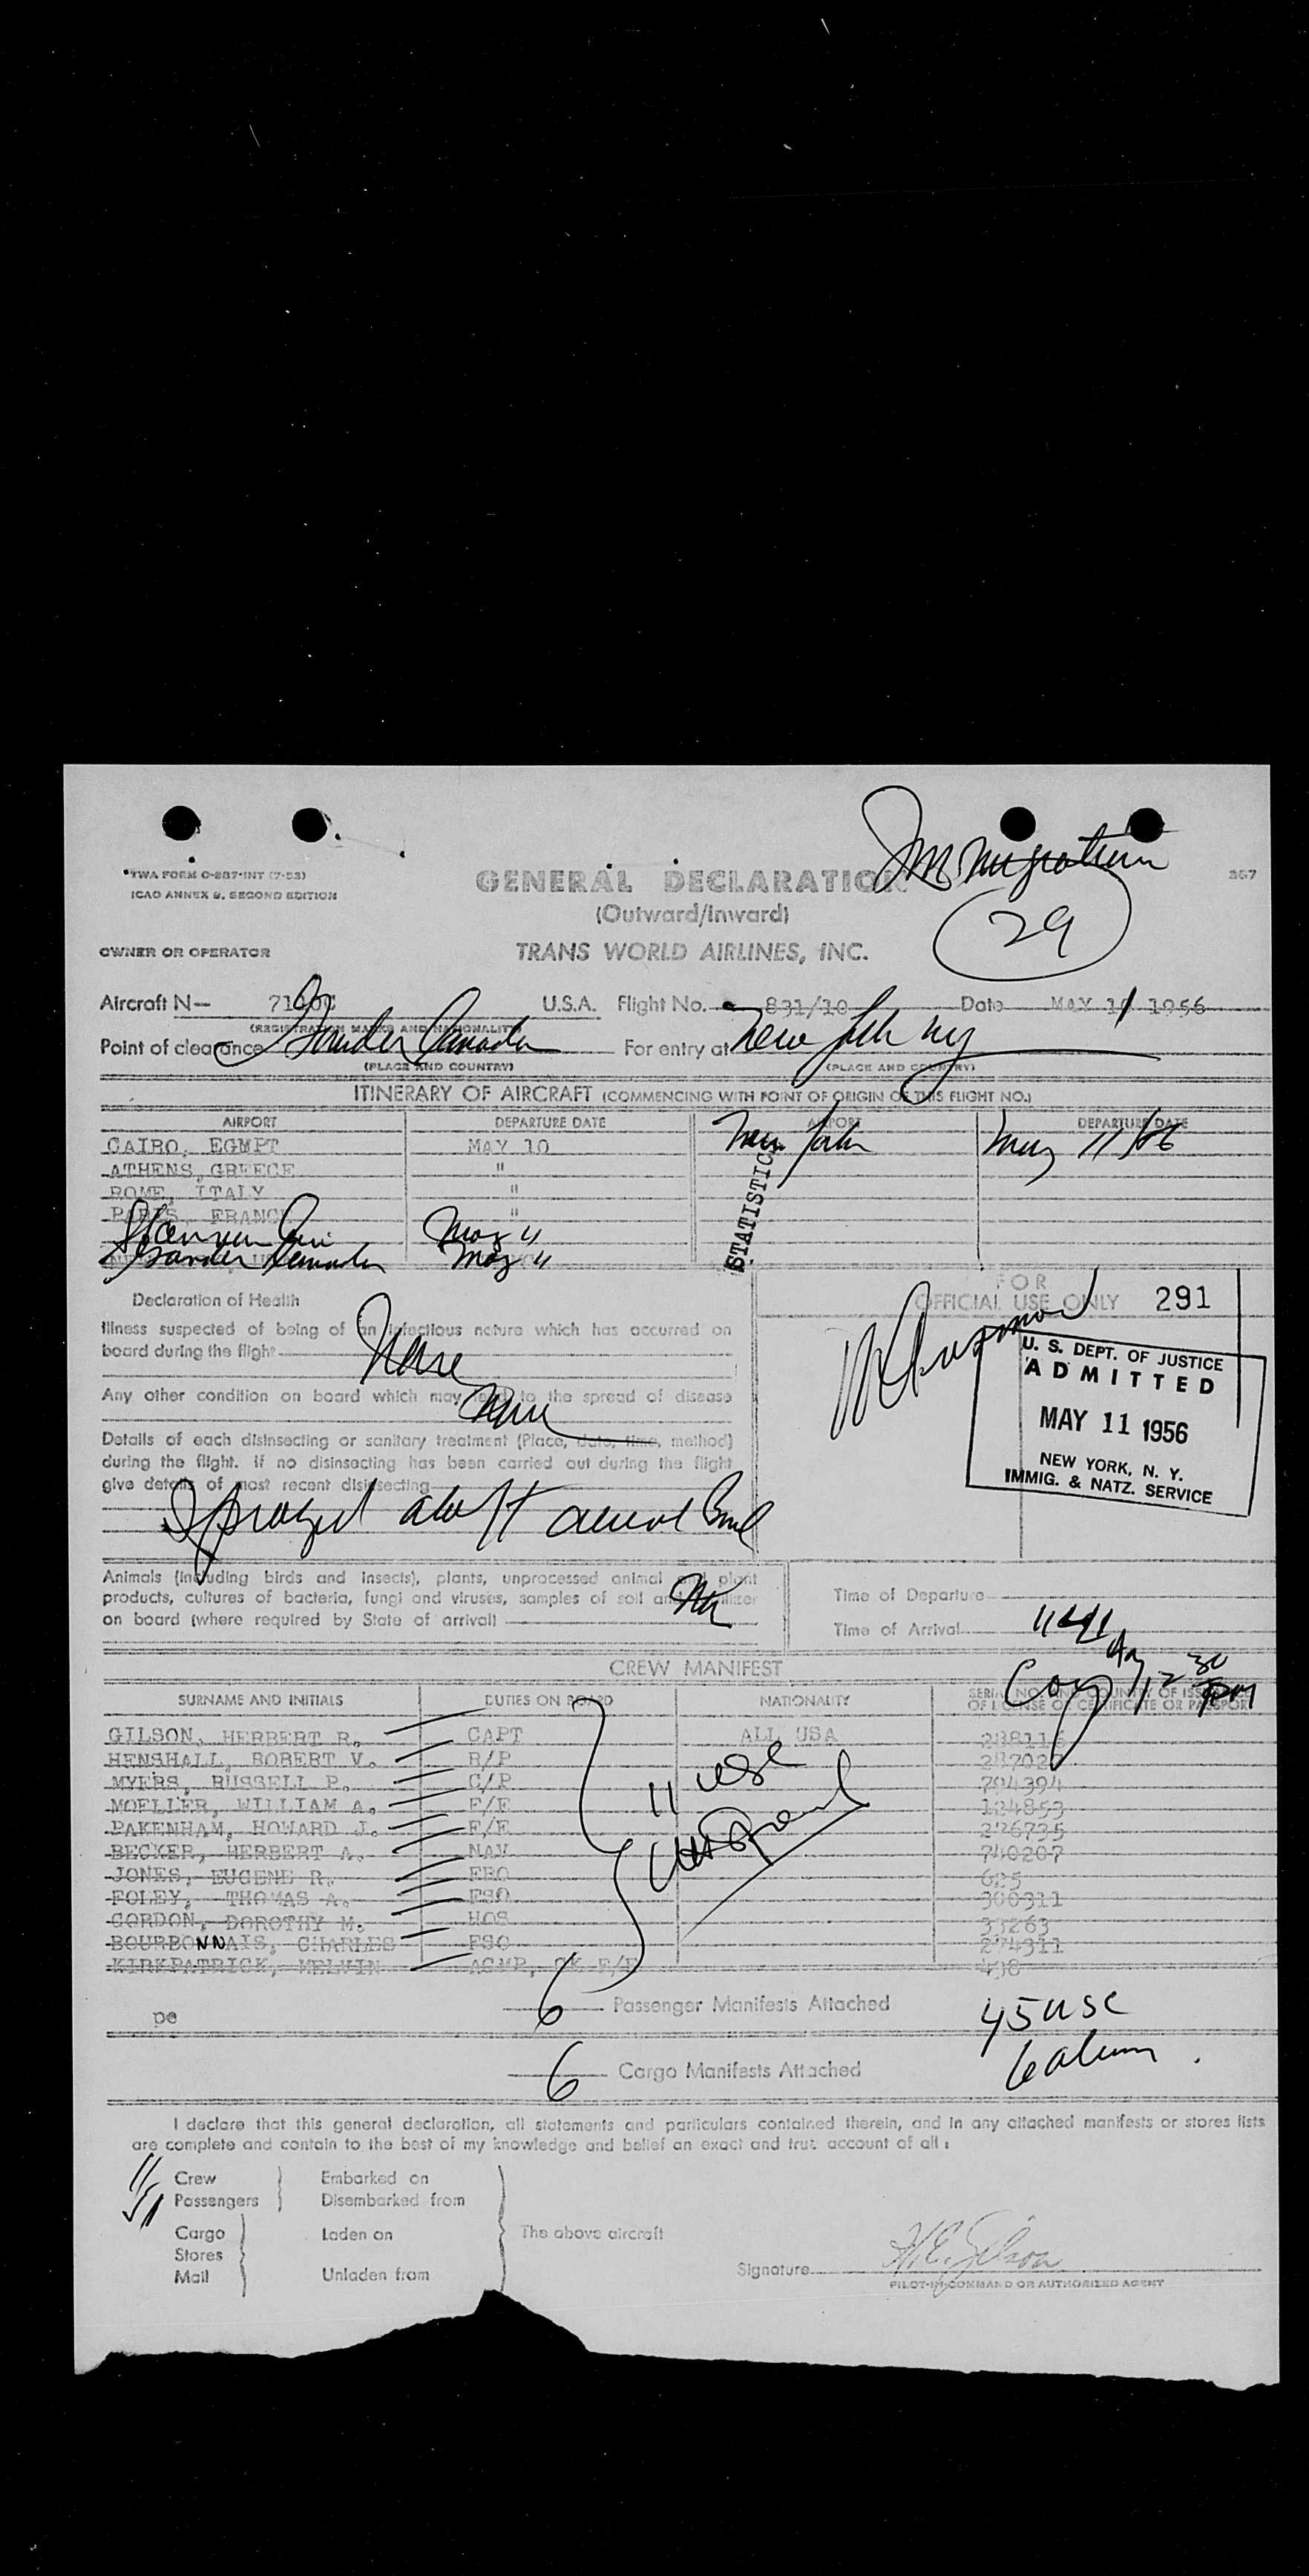 Immigration
TWA FORM O-287-INT (7-53)
ICAO ANNEX 9, SECOND EDITION
GENERAL DECLARATION
(Outward/Inward)
367
29
OWNER OR OPERATOR
TRANS WORLD AIRLINES, INC.
Aircraft N— U.S.A. Flight No. 831/10 Date MAY 11 1956
(REGISTRATION MARKS AND NATIONALITY)
Point of clearance Gander Canada For entry at New York NY
(PLACE AND COUNTRY) (PLACE AND COUNTRY)
ITINERARY OF AIRCRAFT (COMMENCING WITH POINT OF ORIGIN OF THIS FLIGHT NO.)
AIRPORT DEPARTURE DATE AIRPORT DEPARTURE DATE
CAIRO, EGMPT MAY 10 New York May 11/56
ATHENS, GREECE "
ROME, ITALY "
PARIS, FRANCE "
Shannon May 11
Gander Canada May 11
STATISTICS
Declaration of Health
FOR
OFFICIAL USE ONLY 291
Illness suspected of being of an infectious nature which has occurred on
board during the flight None
Any other condition on board which may lead to the spread of disease
None
Details of each disinsecting or sanitary treatment (Place, date, time, method)
during the flight. If no disinsecting has been carried out during the flight
give details of most recent disinsecting
Sprayed aloft aerosol Bomb
U. S. DEPT. OF JUSTICE
ADMITTED
MAY 11 1956
NEW YORK, N. Y.
IMMIG. & NATZ. SERVICE
Animals (including birds and insects), plants, unprocessed animal and plant
products, cultures of bacteria, fungi and viruses, samples of soil and fertilizer
on board (where required by State of arrival)
Time of Departure
Time of Arrival
12 30 PM
CREW MANIFEST
SURNAME AND INITIALS DUTIES ON BOARD NATIONALITY SERIAL NO. AND COUNTRY OF ISSUANCE
OF LICENSE OR CERTIFICATE OR PASSPORT
GILSON, HERBERT R. CAPT ALL USA
HENSHALL, ROBERT V. R/P
MYERS, RUSSELL P. C/P 794394
MOELLER, WILLIAM A. F/E 124853
PAKENHAM, HOWARD J. F/E 226735
BECKER, HERBERT A. NAV 740207
JONES, EUGENE R. FRO 625
FOLEY, THOMAS A. FSO 300311
GORDON, DOROTHY M. HOS 33263
BOURBONNAIS, CHARLES FSO 274311
KIRKPATRICK, MELVIN ACMR, CK F/E 498
11 USC
pe
6 Passenger Manifests Attached
45 USC
6 alien
6 Cargo Manifests Attached
I declare that this general declaration, all statements and particulars contained therein, and in any attached manifests or stores lists
are complete and contain to the best of my knowledge and belief an exact and true account of all:
11 Crew Embarked on
51 Passengers Disembarked from
Cargo Laden on The above aircraft
Stores
Mail Unladen from
Signature H.R. Gilson
PILOT-IN-COMMAND OR AUTHORIZED AGENT